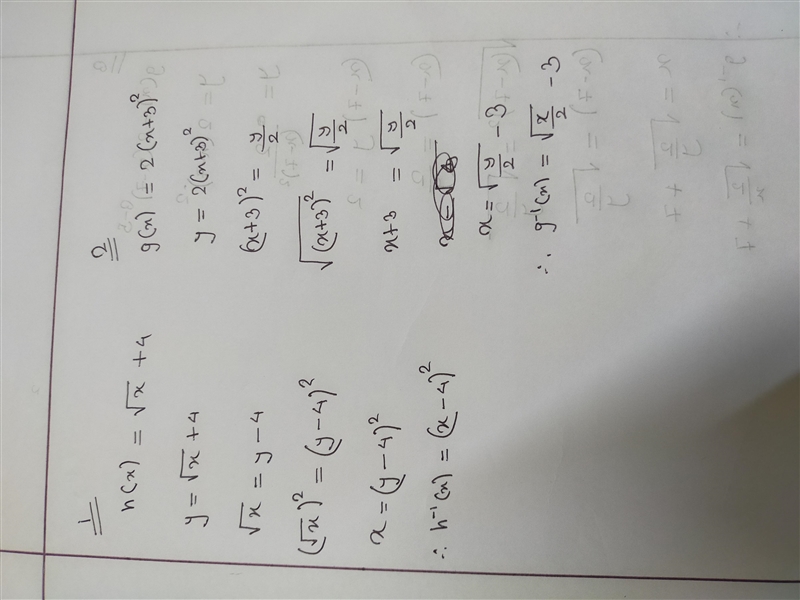 1
h(x) = √x + 4
y = √x + 4
√x = y - 4
(√x)² = (y - 4)²
x = (y - 4)²
∴ h⁻¹(x) = (x - 4)²
2
g(x) = 2(x+3)²
y = 2(x+3)²
(x+3)² = y/2
√(x+3)² = √y/2
x+3 = √y/2
x = √y/2 - 3
∴ g⁻¹(x) = √x/2 - 3